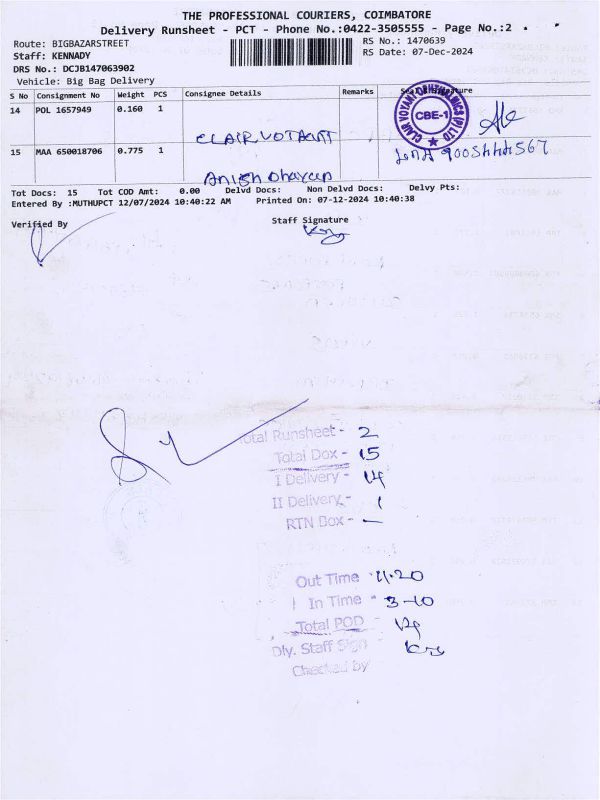 THE PROFESSIONAL COURIERS, COIMBATORE
Delivery Runsheet - PCT - Phone No.:0422-3505555 - Page No.:2
Route: BIGBAZARSTREET
RS No.: 1470639
Staff: KENNADY
RS Date: 07-Dec-2024
DRS No.: DCJB147063902
Vehicle: Big Bag Delivery
S No Consignment No Weight PCS Consignee Details Remarks
14 POL 1657949 0.160 1
CBE-1
CLAIR VOYANT
15 MAA 650018706 0.775 1
Anish
Tot Docs: 15 Tot COD Amt: 0.00 Delvd Docs: Non Delvd Docs: Delvy Pts:
Entered By :MUTHUPCT 12/07/2024 10:40:22 AM Printed On: 07-12-2024 10:40:38
Verified By
Staff Signature
Total Runsheet - 2
Total Dox - 15
I Delivery - 14
II Delivery - 1
RTN Dox - —
Out Time 11.20
In Time - 3-10
Total POD -
Dly. Staff Sign
Checked by